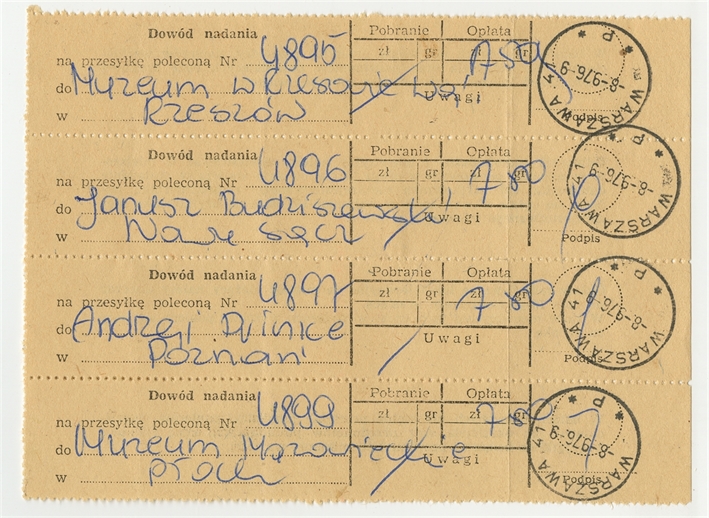 Dowód nadania Pobranie Opłata
na przesyłkę poleconą Nr 4895 zł gr zł gr 750
do Muzeum w Rzeszowie
Uwagi
w Rzeszów Podpis
WARSZAWA 41 * P * -8-976.9
Dowód nadania Pobranie Opłata
na przesyłkę poleconą Nr 4896 zł gr zł gr 780
do Janusz Budziszewski
Uwagi
w Nowy Sącz Podpis
WARSZAWA 41 * P * -8-976.9
Dowód nadania Pobranie Opłata
na przesyłkę poleconą Nr 4897 zł gr zł gr 780
do Andrzej
Uwagi
w Poznań Podpis
WARSZAWA 41 * P * -8-976.9
Dowód nadania Pobranie Opłata
na przesyłkę poleconą Nr 4899 zł gr zł gr 780
do Muzeum Mazowieckie
Uwagi
w Płock Podpis
WARSZAWA 41 * P * -8-976.9